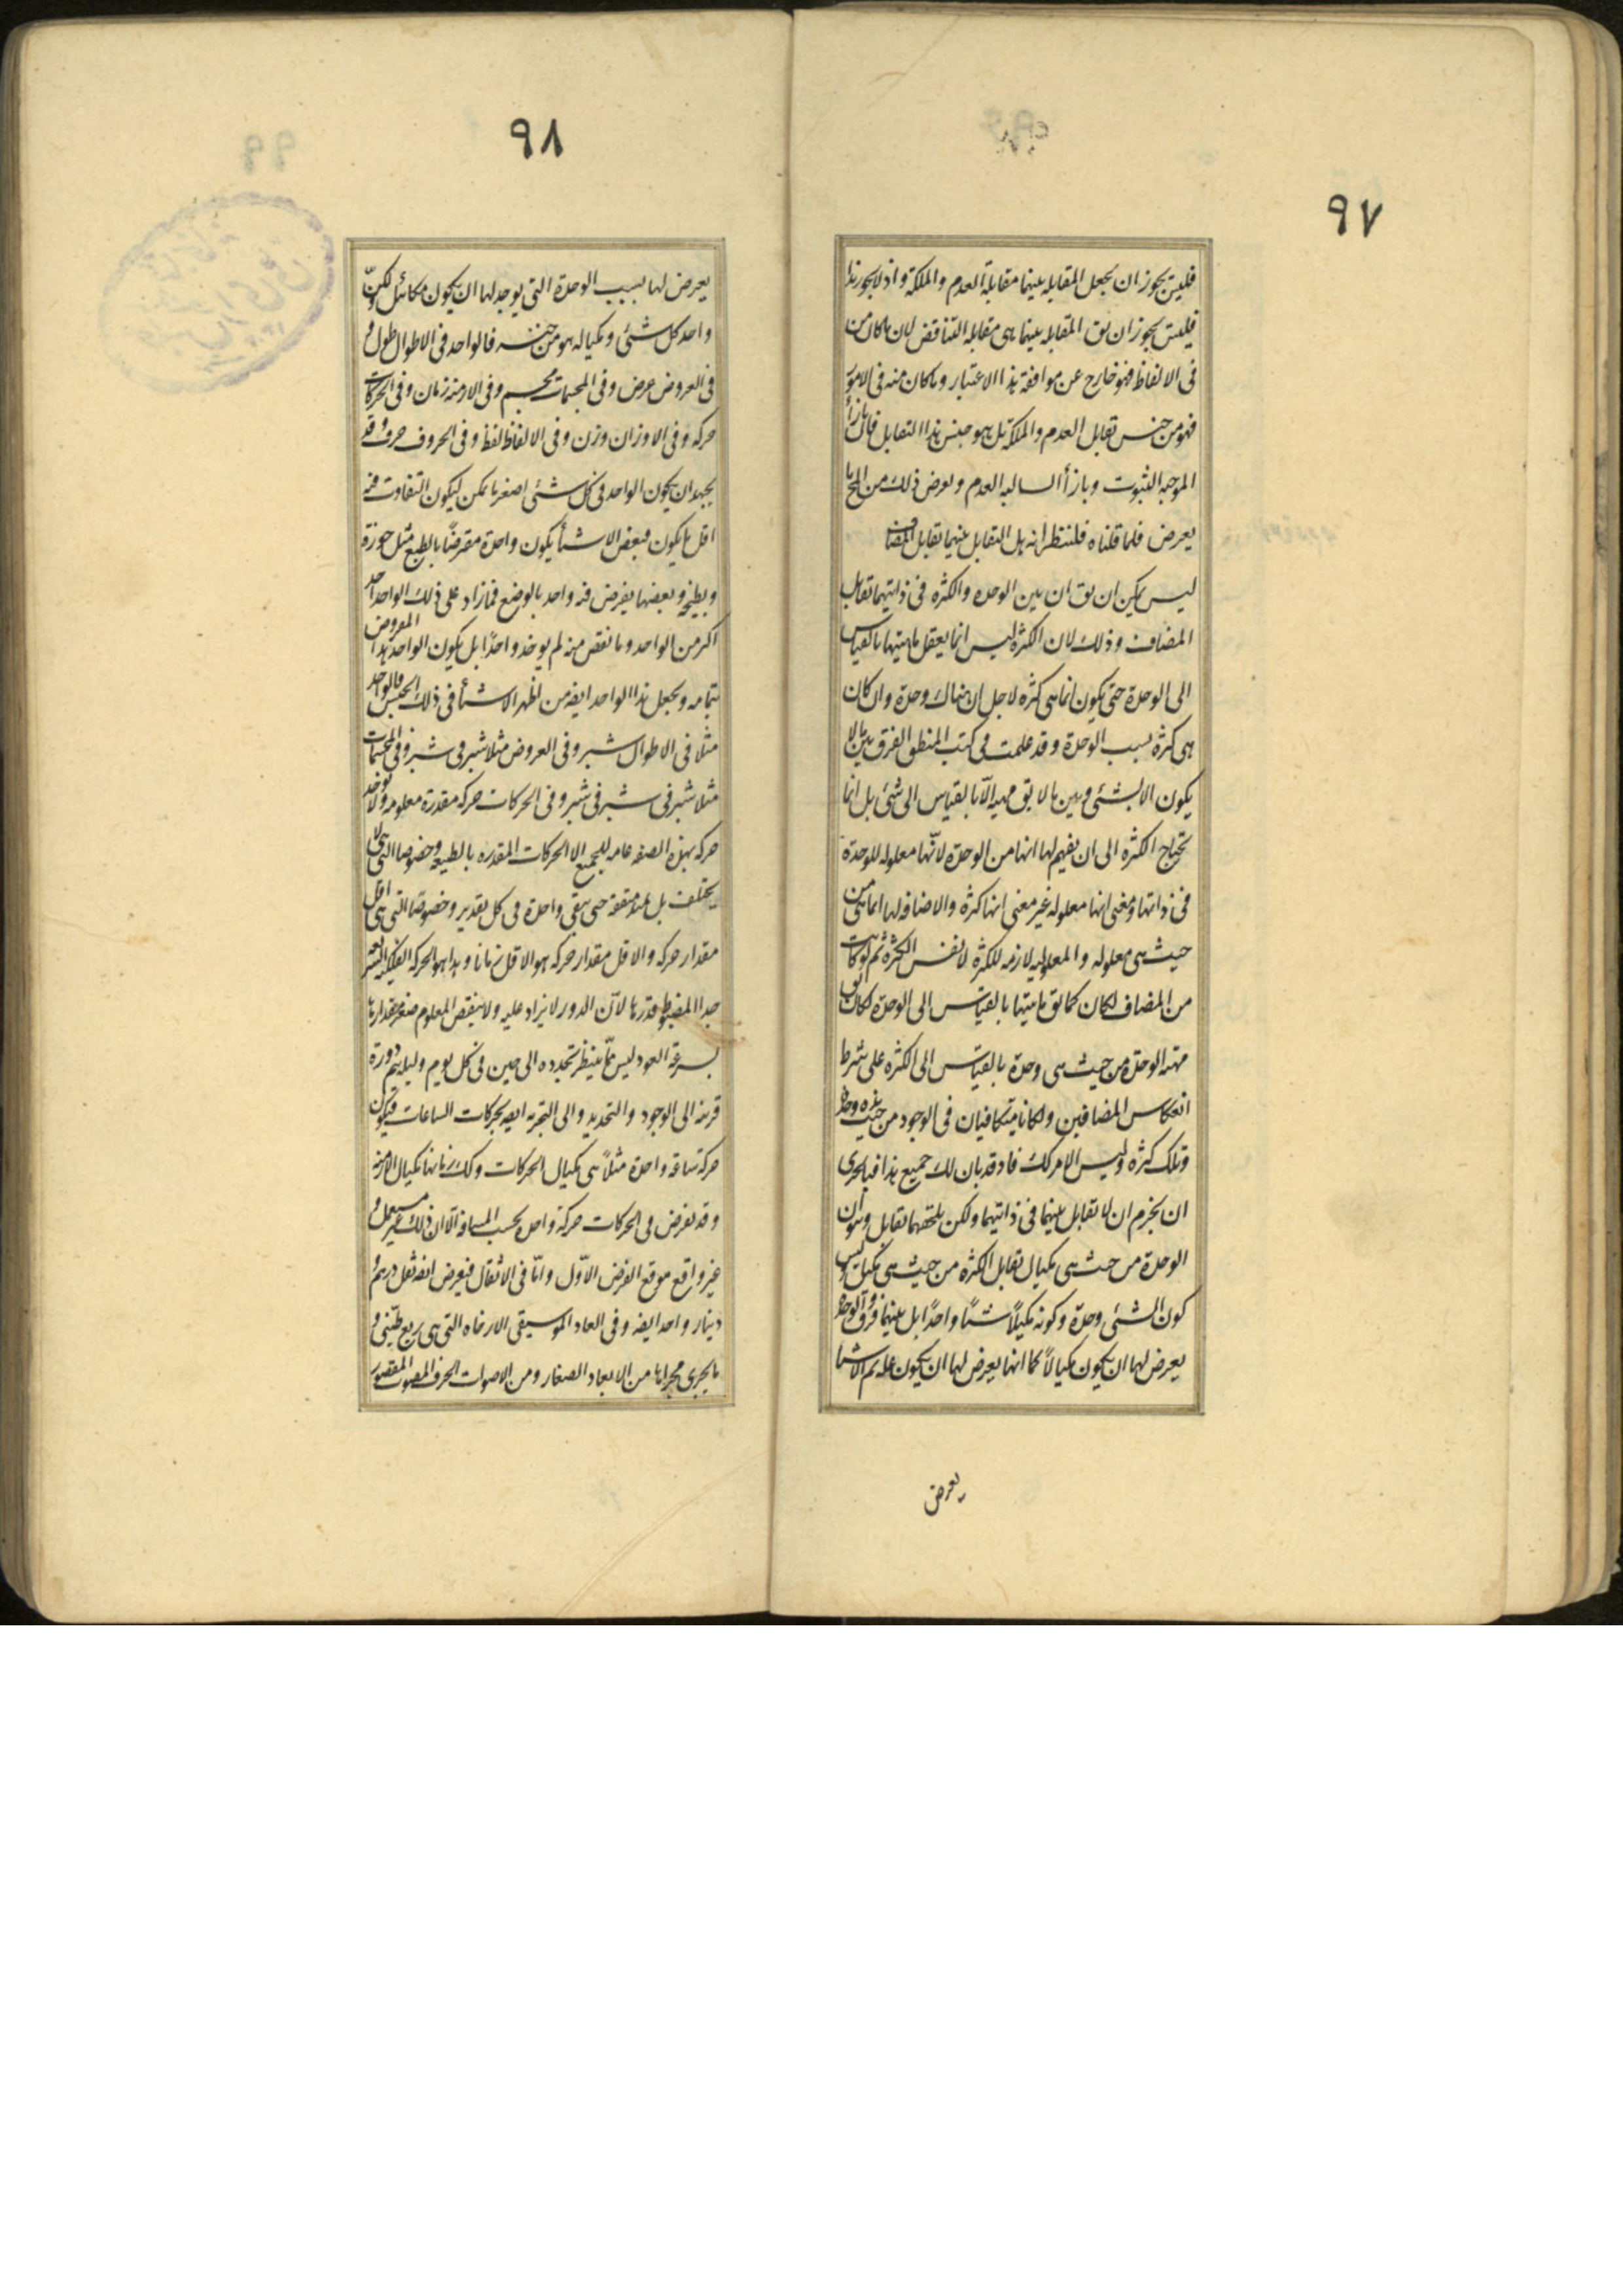 ٩٧
فليس يجوز ان يجعل المقابله بينهما مقابلة العدم والملكة واذ لا يجوز هذا
فليس يجوز ان يق المقابله بينهما هى مقابله التناقض لان ما كان من
فى الالفاظ فهو خارج عن موافقة هذا الاعتبار وما كان منه فى الامور
فهو من جنس تقابل العدم والملكة بل هو جنس هذا التقابل فان بازأ
الموجبه الثبوت وبازأ السالبه العدم ولعرض ذلك من المح ما
يعرض فلما قلناه فلننظر انه هل التقابل بينهما تقابل المضاف
ليس يمكن ان يق ان بين الوحده والكثره فى ذاتيهما تقابل
المضاف وذلك لان الكثره ليس انما يعقل ماهيتها بالقياس
الى الوحدة حتى يكون انما هى كثره لاجل ان هناك وحدة وان كان
هى كثرة بسبب الوحدة وقد علمت فى كتب المنطق الفرق بين ما لا
يكون الا بشئى وبين ما لا يق مهيه الّا بالقياس الى شئ بل انما
تحتاج الكثره الى ان يفهم لها انها من الوحدة لانّها معلوله للوحدة
فى ذاتها ومعنى انها معلوله غير معنى انها كثره والاضافه لها انما هى من
حيث هى معلوله والمعلوليه لازمه للكثره لا نفس الكثرة ثم لو كانت
من المضاف لكان كما يق ماهيتها بالقياس الى الوحدة لكان يق
مهية الوحدة من حيث هى وحدة بالقياس الى الكثره على شرط
انعكاس المضافين ولكانا متكافيان فى الوجود من حيث هذه وحدة
وتلك كثره وليس الامر كك فاذ قد بان لك جميع هذا فبالحرى
ان يجزم ان لا تقابل بينهما فى ذاتيهما ولكن يلحقهما تقابل وهو ان
الوحدة من حيث هى مكيال تقابل الكثره من حيث هى مكيل وليس
كون الشئى وحدة وكونه مكيالًا شيئًا واحدًا بل بينهما فرق والوحدة
يعرض لها ان يكون مكيالًا كما انها يعرض لها ان يكون علة ثم الاشيا
يعرض
٩٨
يعرض لها بسبب الوحدة التى يوجد لها ان يكون مكائيل لكنّ
واحد كل شئى ومكياله هو من جنسه فالواحد فى الاطوال طول و
فى العروض عرض وفى المجسمات مجسم وفى الازمنة زمان وفى الحركات
حركه وفى الاوزان وزن وفى الالفاظ لفظ وفى الحروف حرف وقد
يجهد ان يكون الواحد فى كل شئى اصغر ما يمكن ليكون التفاوت فيه
اقل ما يكون فبعض الاشيأ يكون واحدة مفترضًا بالطبع مثل جوزة
وبطيخه وبعضها يفرض فيه واحد بالوضع فما زاد على ذلك الواحد اخذ
اكثر من الواحد وما نقص منه لم يوخذ واحدًا بل يكون الواحد هذا المفروض
بتمامه ويجعل هذا الواحد ايضه من اظهر الاشيأ فى ذلك الجنس فالواحد
مثلًا فى الاطوال شبر وفى العروض مثلا شبر فى شبر وفى المجسمات
مثلًا شبر فى شبر فى شبر وفى الحركات حركه مقدرة معلومه ولا يوجد
حركه بهذه الصفه عامه للجميع الا الحركات المقدره بالطبيعه وخصوصا التى لا
يختلف بل تمتد متفقه حتى تبقى واحدة فى كل تقدير وخصوصًا التى هى اقل
مقدار حركه والاقل مقدار حركه هو الاقل زمانا وهذا هو الحركه الفلكيه السريعه
جدا المضبوط قدرها لانّ الدور لا يزاد عليه ولا ينقص المعلوم صغر مقدارها
بسرعة العود ليس مّما ينتظر تجدده الى حين فى كل يوم وليله يتم دورة
قريبه الى الوجود والتحديد والى التجربه ايضه بحركات الساعات فيكون
حركة ساعة واحدة مثلاً هى مكيال الحركات وكك زمانها مكيال الازمنه
وقد يفرض فى الحركات حركة واحدة بحسب المسافه الّا ان ذلك غير مستعمل و
غير واقع موقع الفرض الاوّل وامّا فى الاثقال فيفرض ايضه ثقل درهم و
دينار واحد ايضه وفى ابعاد الموسيقى الارخاه التى هى ربع طنينى و
ما يجرى مجراها من الابعاد الصغار ومن الاصوات الحرف المصوت المقصور